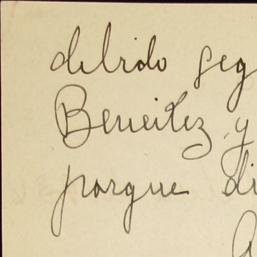 debido seg
Beneitez y
porque di